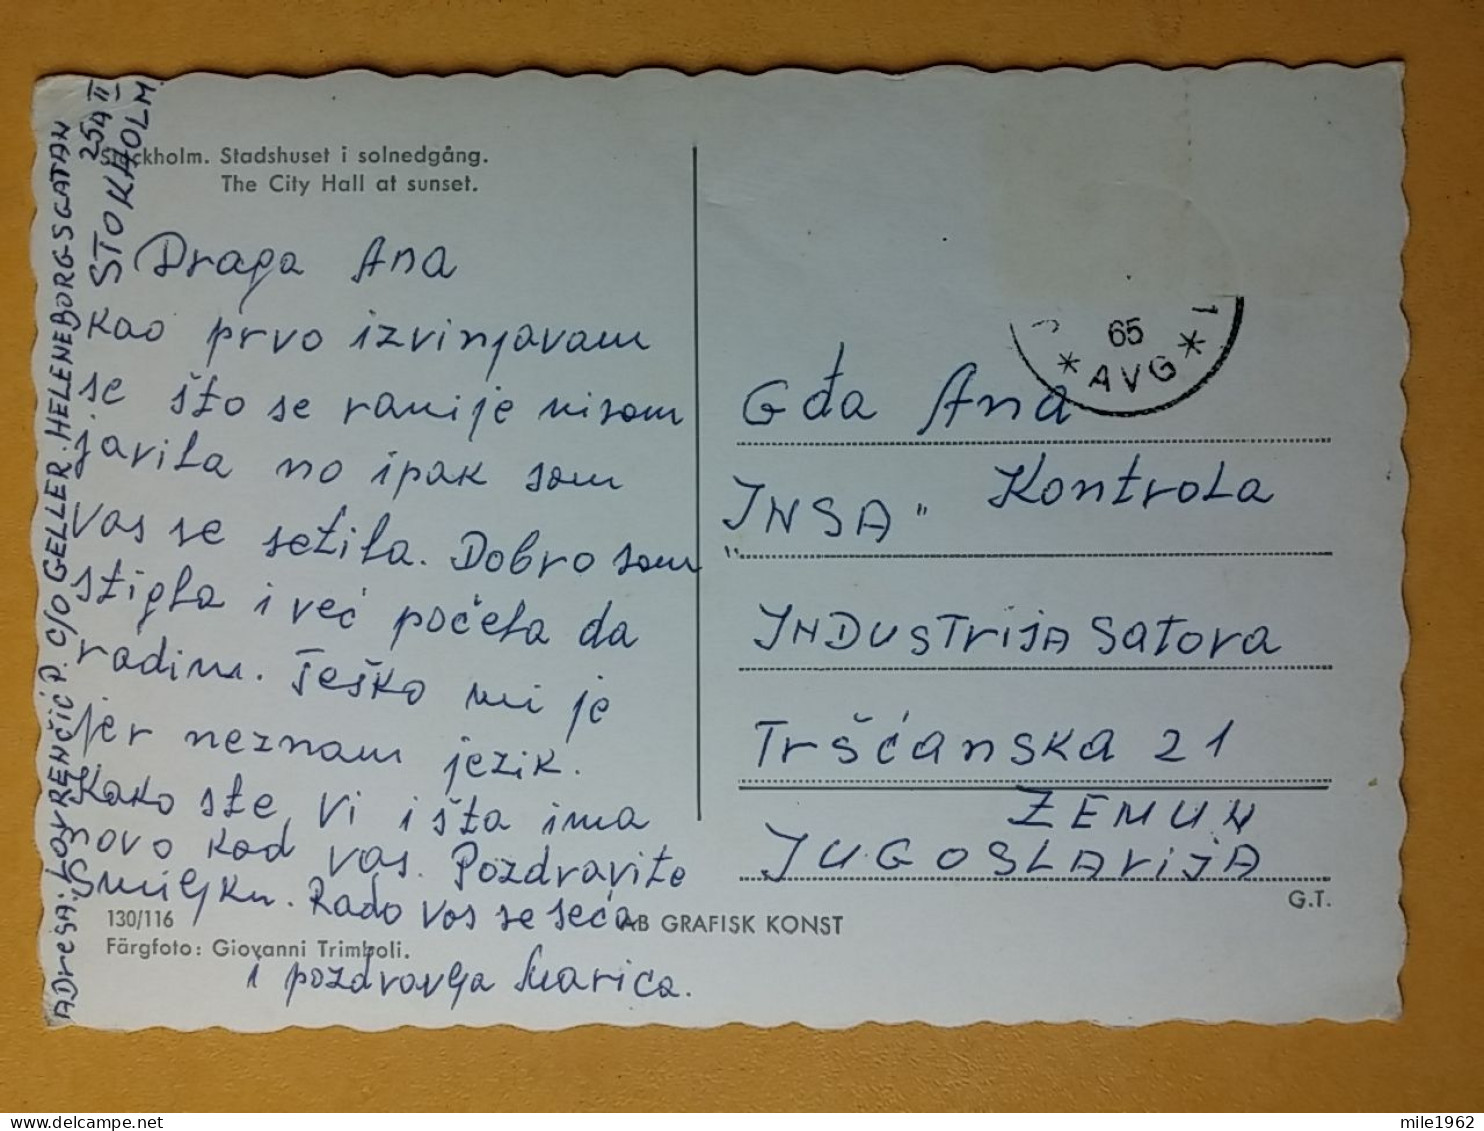 Stockholm. Stadshuset i solnedgång.
The City Hall at sunset.
Draga Ana
kao prvo izvinjavam
se što se ranije nisam
javila no ipak sam
Vas se setila. Dobro sam
stigla i već počela da
radim. Teško mi je
jer neznam jezik.
Kako ste Vi i šta ima
novo kod vas. Pozdravite
Smiljku. Rado Vas se seća
i pozdravlja Marica.
Adresa: LOVRENČIĆ P. C/O GELLER. HELENEBORGSGATAN
25A II
STOKHOLM.
130/116
Färgfoto: Giovanni Trimboli.
AB GRAFISK KONST
65
* AVG *
1
Gđa Ana
Kontrola
"INSA"
INDUSTrIJA Satova
Tršćanska 21
ZEMUN
JUGOSLAVIJA
G.T.
mile1962